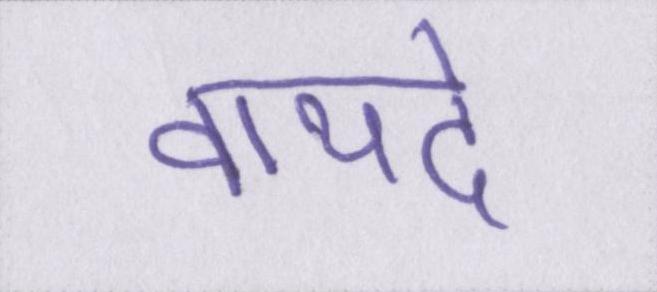 वायदे